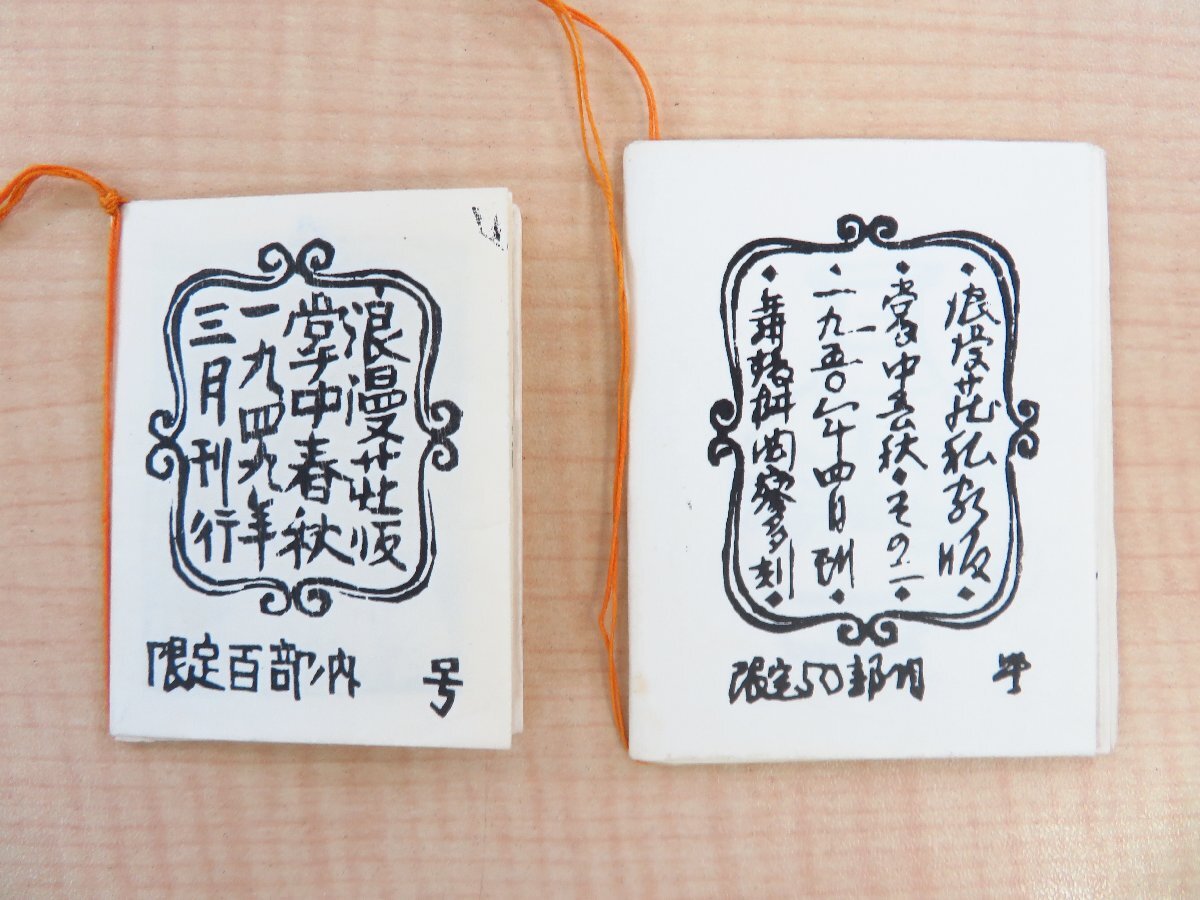 浪漫荘版
掌中春秋
一九四九年
三月刊行
限定百部ノ内 号
浪漫荘私家版
掌中春秋◆その二
一九五〇年四月
刻
限定50部ノ内 号